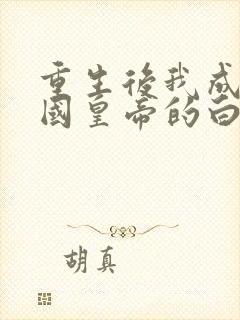 重生後我成
國皇帝的白
胡真